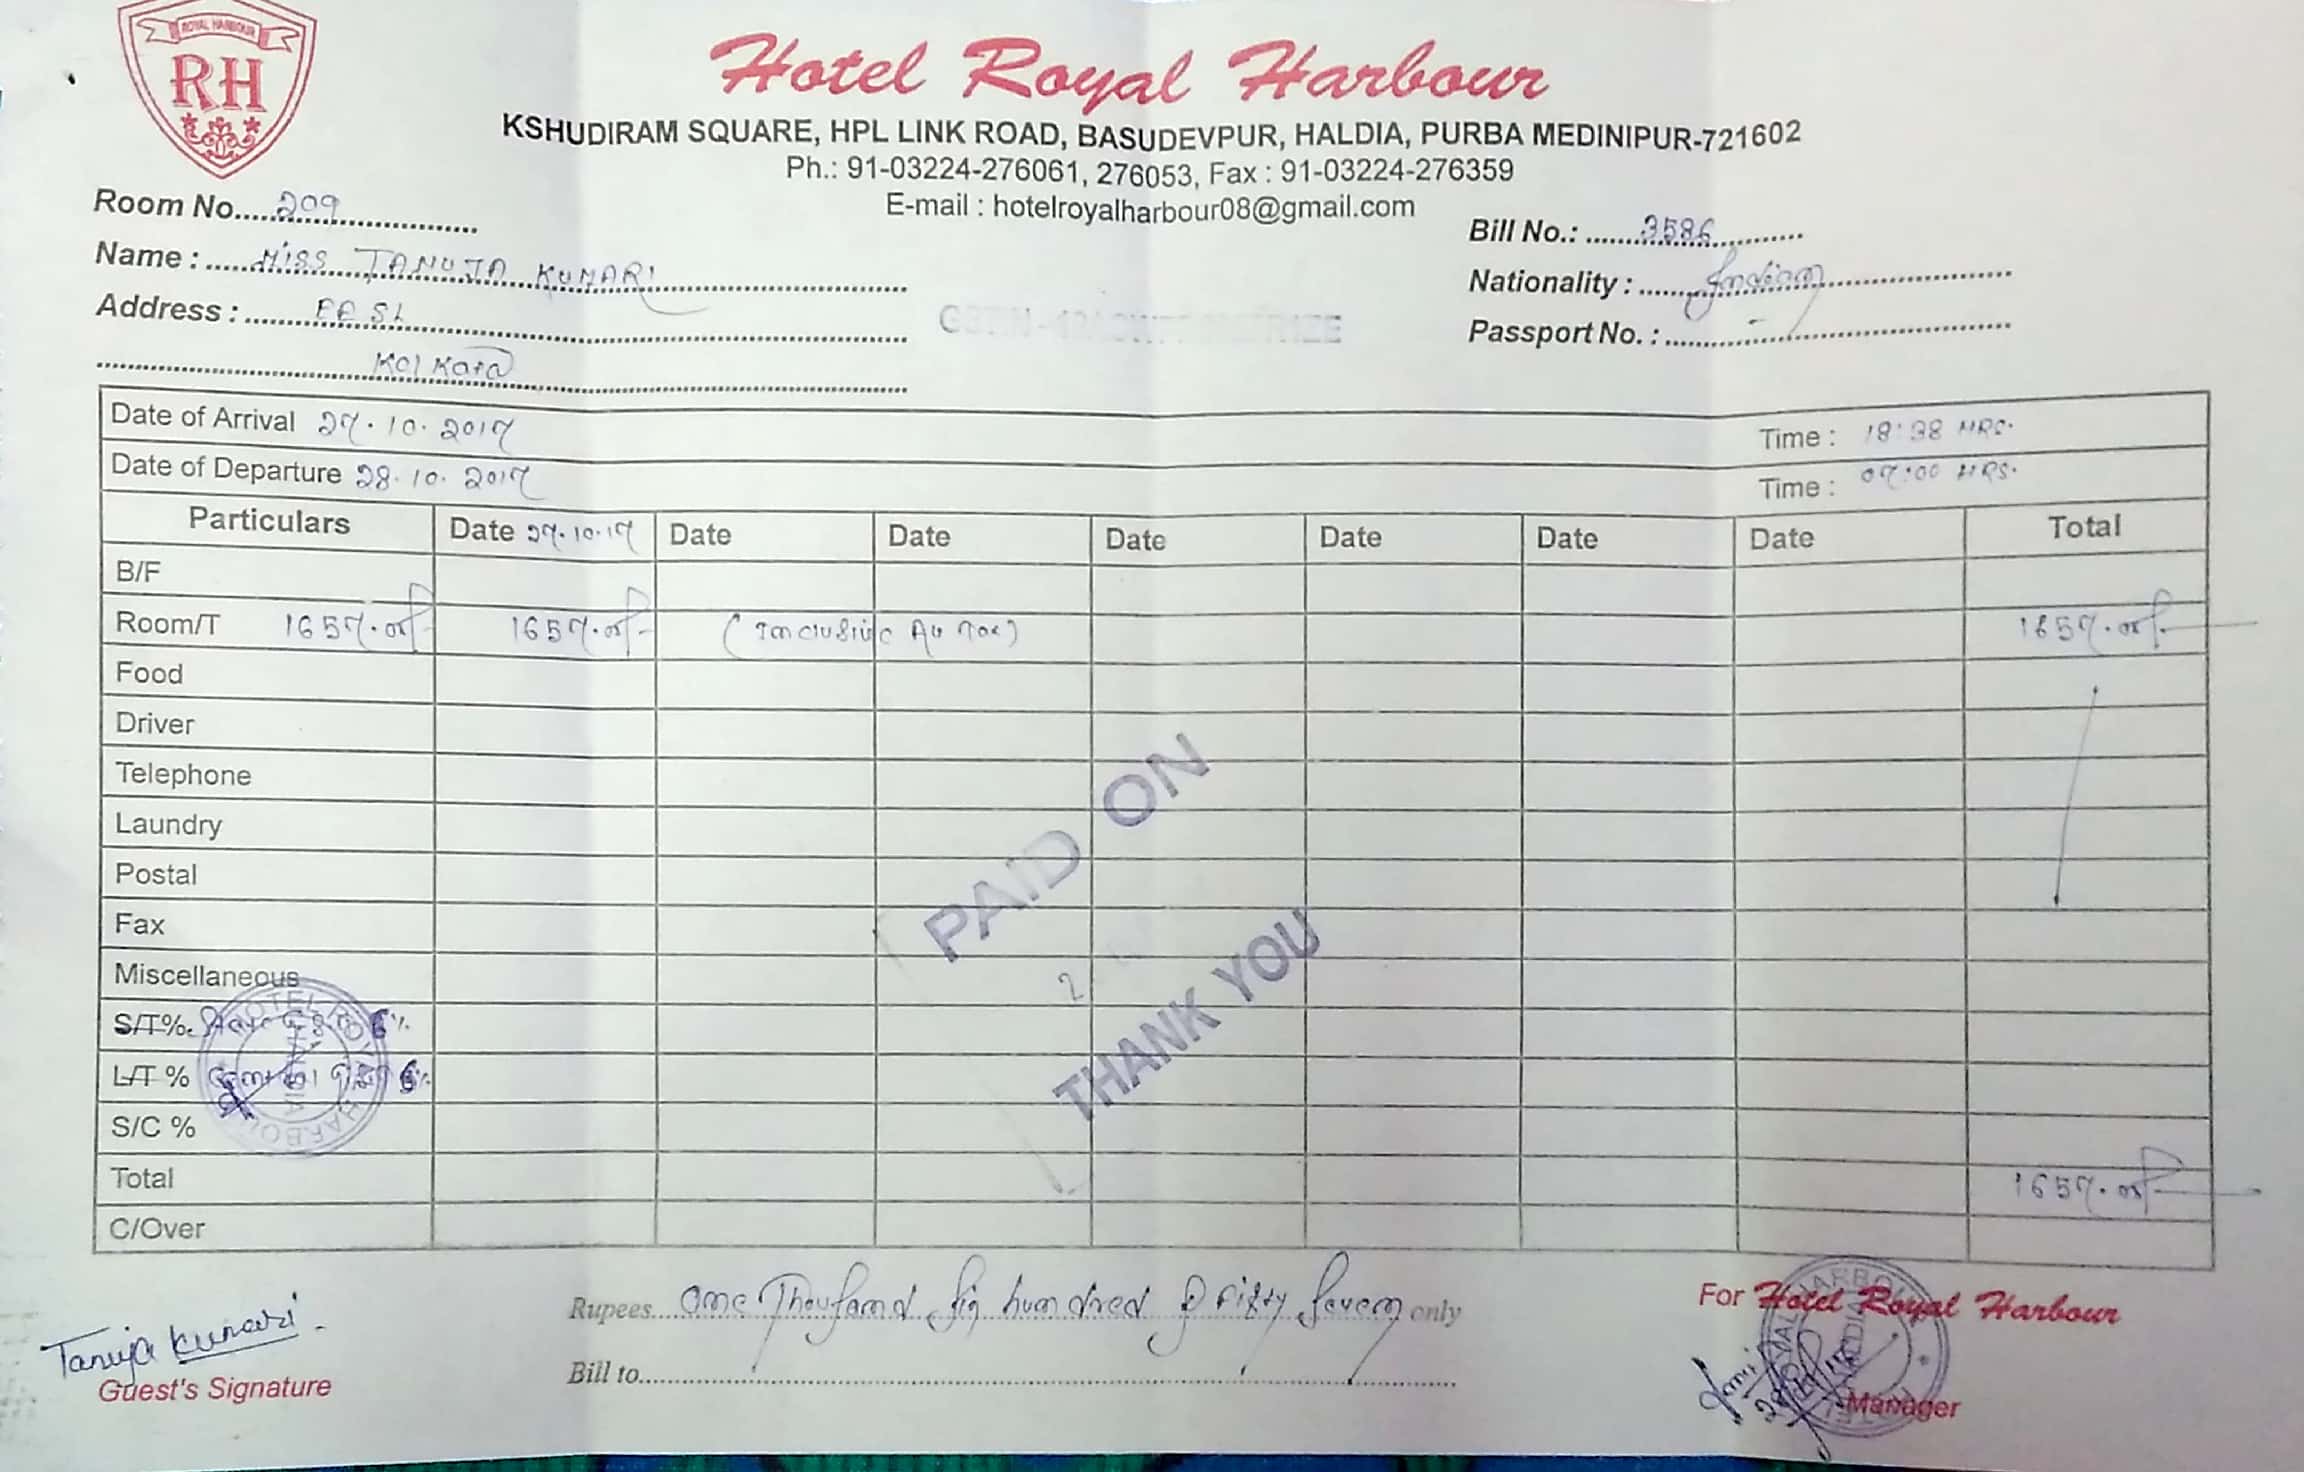 ROYAL HARBOUR
RH
Hotel Royal Harbour
KSHUDIRAM SQUARE, HPL LINK ROAD, BASUDEVPUR, HALDIA, PURBA MEDINIPUR-721602
Ph.: 91-03224-276061, 276053, Fax : 91-03224-276359
E-mail : hotelroyalharbour08@gmail.com
Room No. 209
Bill No.: 3586
Name : MISS TANUJA KUMARI
Nationality : Indian
Address : EESL
Passport No. : -
Kolkata
Date of Arrival 27.10.2017 Time : 18:38 HRS.
Date of Departure 28.10.2017 Time : 07:00 HRS.
Particulars Date 27.10.17 Date Date Date Date Date Date Total
B/F
Room/T 1657.00 1657.00 (Inclusive All Tax) 1657.00
Food
Driver
Telephone
Laundry
Postal
Fax
Miscellaneous
S/T% State 6%
L/T % 6%
S/C %
Total 1657.00
C/Over
PAID ON
THANK YOU
HOTEL ROYAL HARBOUR
HALDIA
Rupees One Thousand Six hundred & Fifty Seven only
Bill to
Tanuja Kumari
Guest's Signature
For Hotel Royal Harbour
Manager